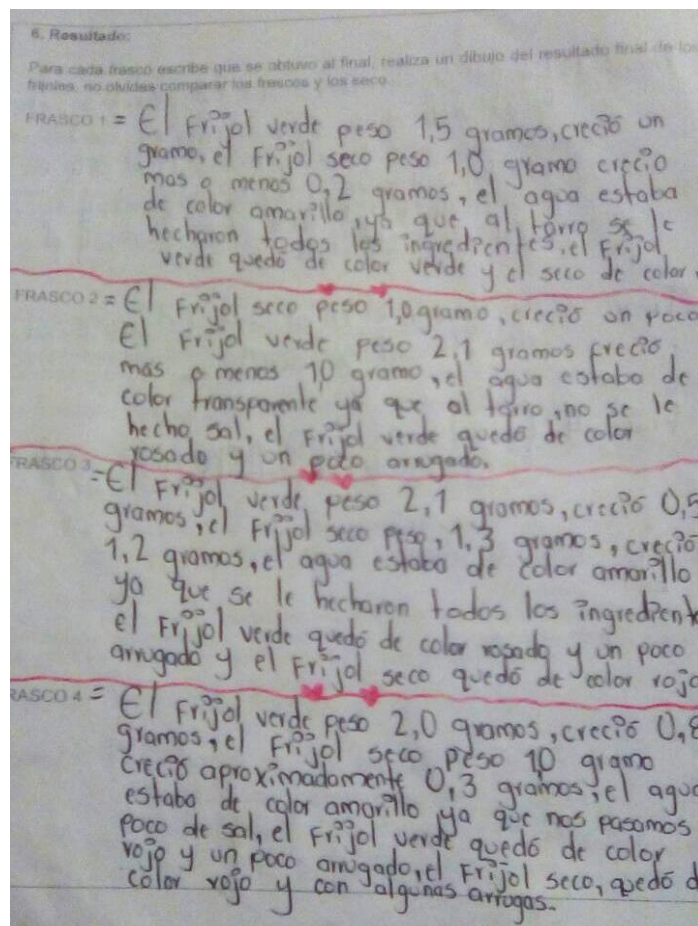 6. Resultado:
Para cada frasco escribe que se obtuvo al final, realiza un dibujo del resultado final de los
frijoles, no olvides comparar los frescos y los seco.
FRASCO 1 = El Frijol verde peso 1,5 gramos, creció un
gramo, el Frijol seco peso 1,0 gramo creció
mas o menos 0,2 gramos, el agua estaba
de color amarillo, ya que al tarro se le
hecharon todos los ingredientes, el Frijol
verde quedó de color verde y el seco de color
FRASCO 2 = El Frijol seco peso 1,0 gramo, creció un poco
El Frijol verde peso 2,1 gramos creció
mas o menos 1,0 gramo, el agua estaba de
color transparente ya que al tarro, no se le
hecho sal, el Frijol verde quedó de color
rosado y un poco arrugado.
FRASCO 3 = El Frijol verde, peso 2,1 gramos, creció 0,5
gramos, el Frijol seco peso, 1,3 gramos, creció
1,2 gramos, el agua estaba de color amarillo
ya que se le hecharon todos los ingredient
el Frijol verde quedó de color rosado y un poco
arrugado y el Frijol seco quedó de color rojo
RASCO 4 = El Frijol verde peso 2,0 gramos, creció 0,8
gramos, el Frijol seco peso 1,0 gramo
creció aproximadamente 0,3 gramos, el agua
estaba de color amarillo ya que nos pasamos
poco de sal, el Frijol verde quedó de color
rojo y un poco arrugado, el Frijol seco, quedó d
color rojo y con algunas arrugas.